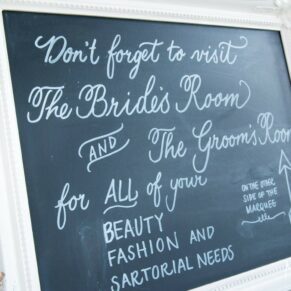 Don't forget to visit
The Bride's Room
AND
The Groom's Room
for ALL of your
BEAUTY
FASHION AND
SARTORIAL NEEDS
ON THE OTHER
SIDE OF THE
MARQUEE